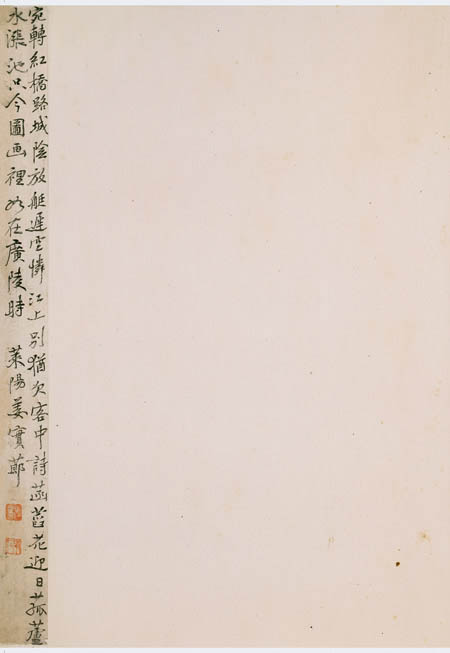 宛轉紅橋路城陰放艇遲空憐江上別猶欠客中詩菡萏花迎日菰蘆
水漲池只今圖画裡如在廣陵時 萊陽姜實節